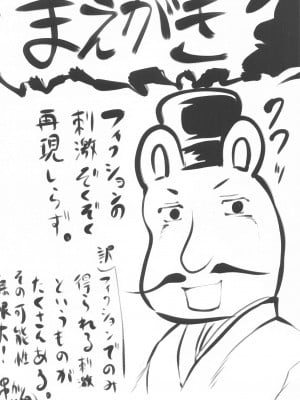 まえがき
フィクションの
刺激ぞくぞく
再現しらず。
訳)フィクションでのみ
得られる刺激
というものが
たくさんある。
その可能性
無限大!